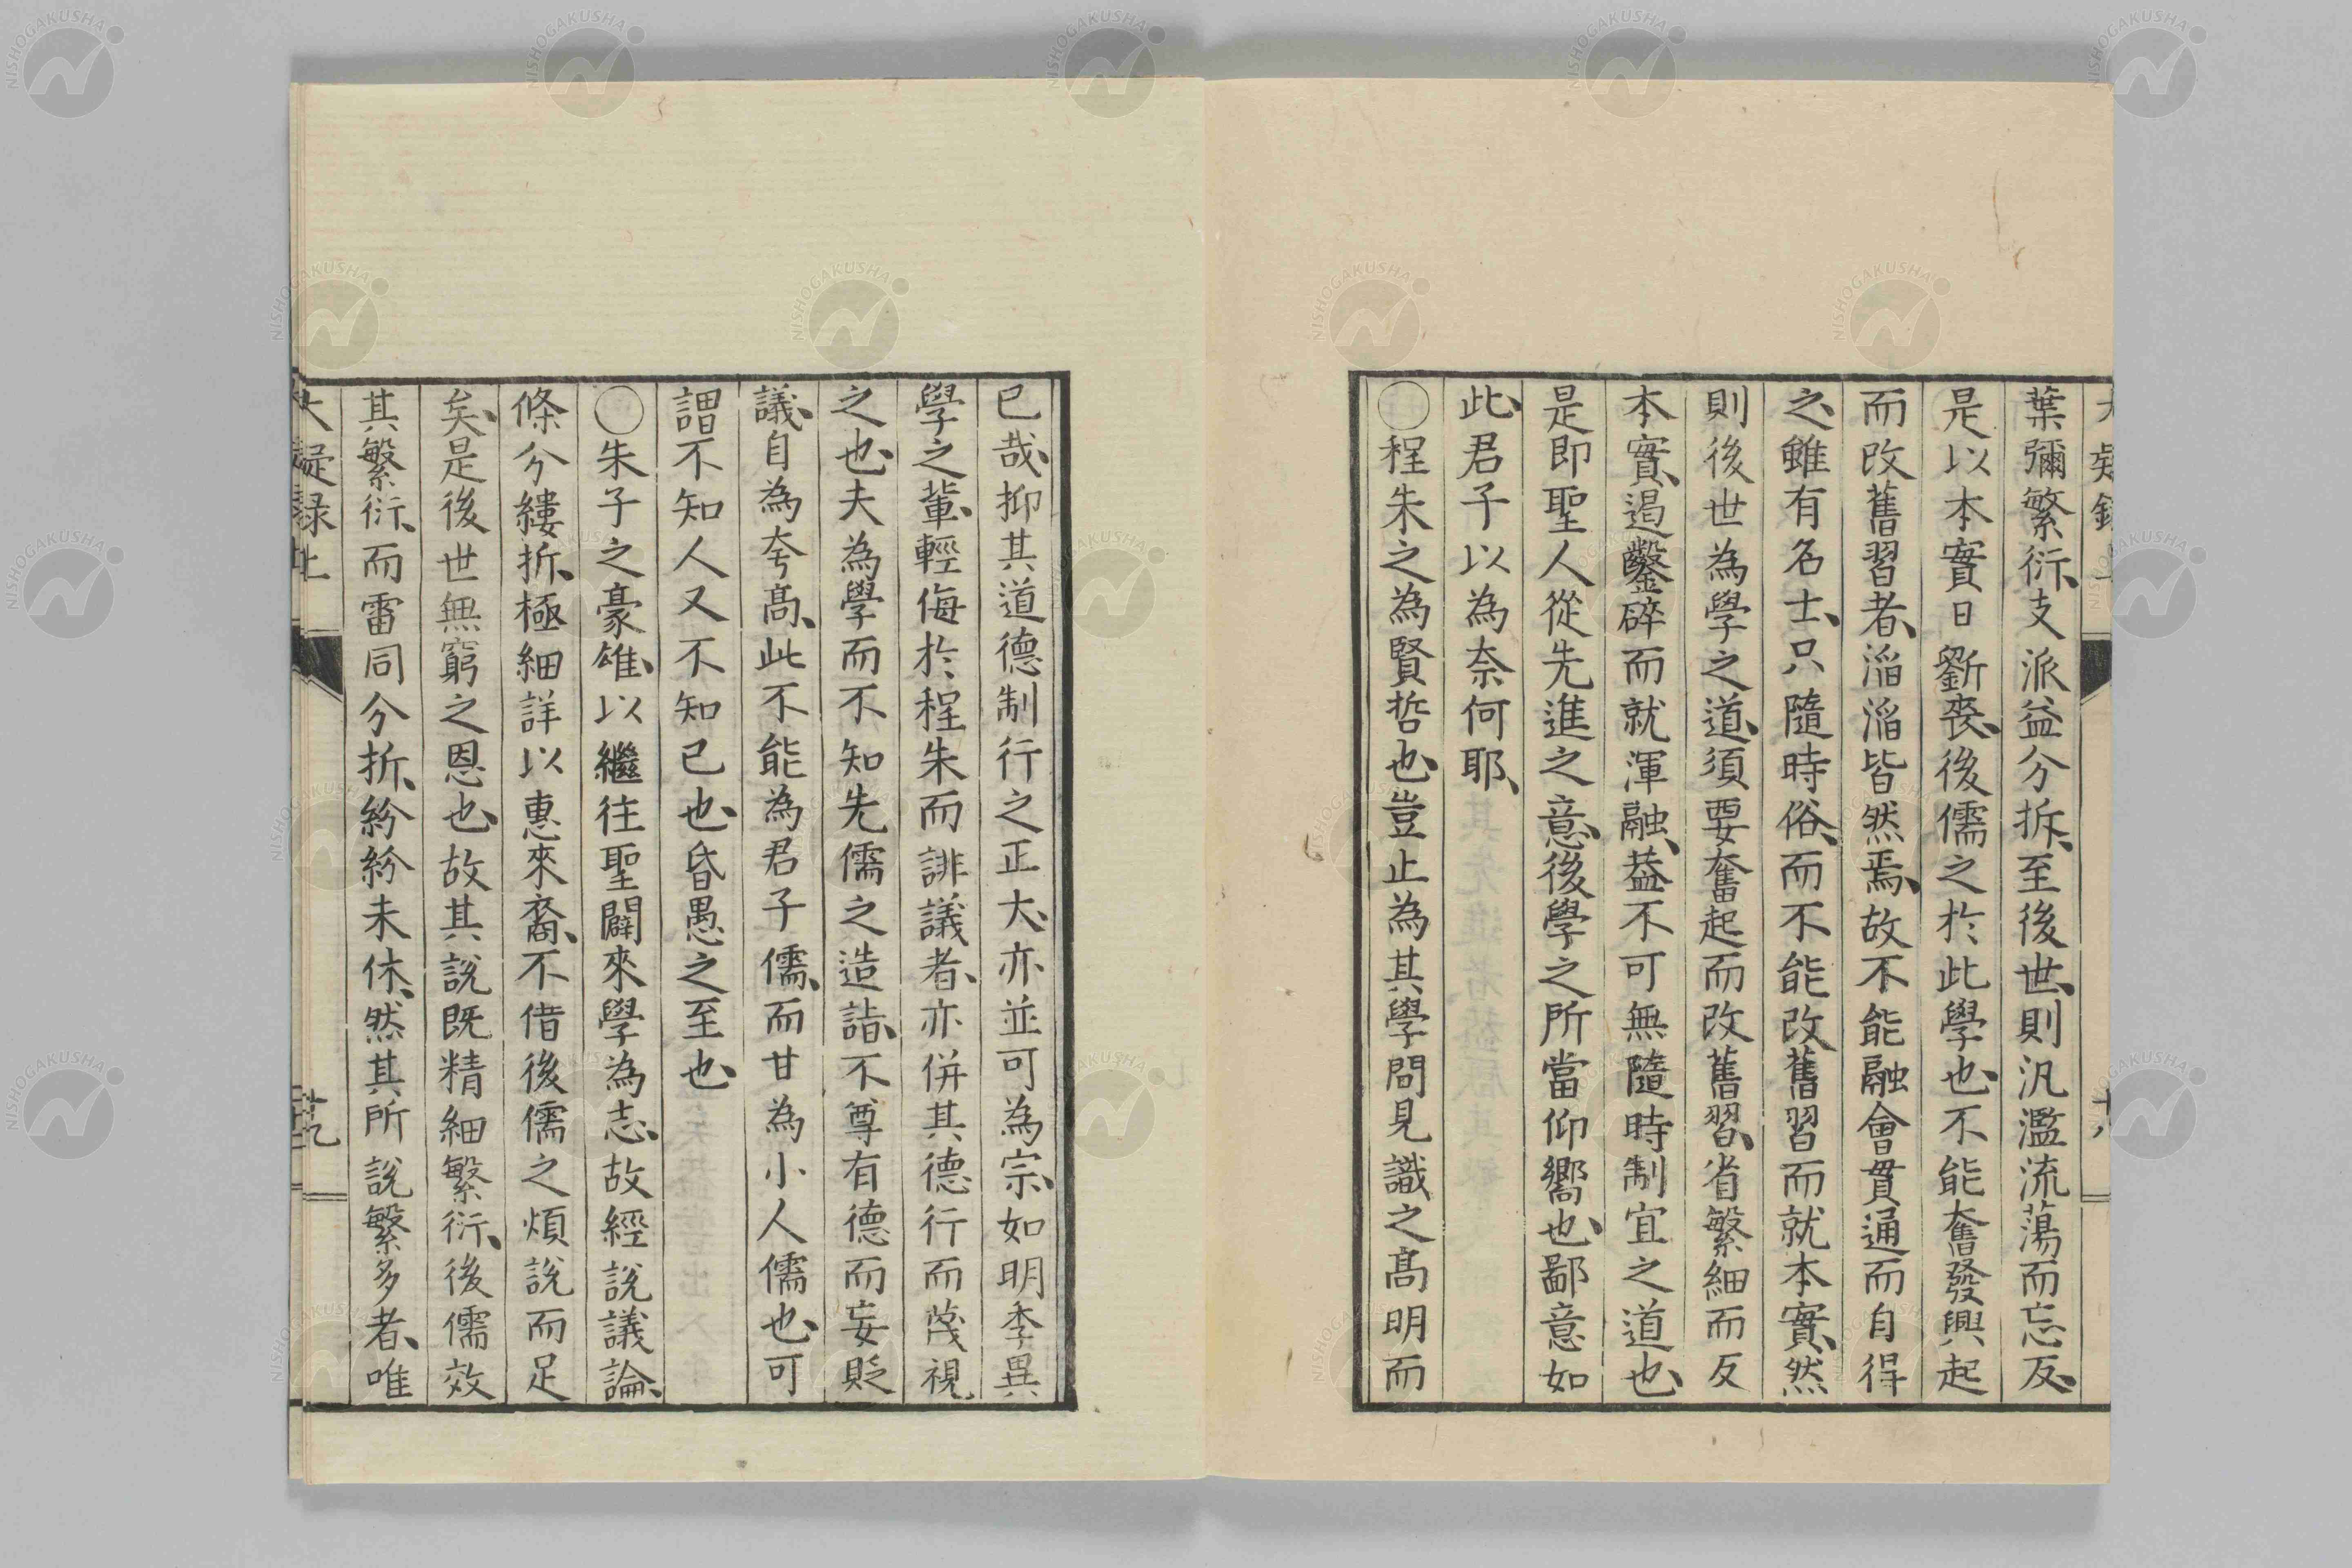 葉彌繁衍、支派益分拆、至後世、則汎濫流蕩而忘反、
是以本實日斵喪、後儒之於此學也、不能奮發興起
而改舊習者、滔滔皆然焉、故不能融會貫通而自得
之、雖有名士、只隨時俗、而不能改舊習而就本實、然
則後世為學之道、須要奮起而改舊習、省繁細而反
本實、遏鑿碎而就渾融、蓋不可無隨時制宜之道也、
是即聖人從先進之意、後學之所當仰嚮也、鄙意如
此、君子以為奈何耶、
○程朱之為賢哲也、豈止為其學問見識之髙明而
已哉、抑其道德制行之正大、亦並可為宗、如明季異
學之輩、輕侮於程朱而誹議者、亦併其德行而蔑視
之也、夫為學而不知先儒之造詣、不尊有德而妄貶
議、自為夸髙、此不能為君子儒、而甘為小人儒也、可
謂不知人又不知己也、昏愚之至也、
○朱子之豪雄、以繼往聖闢來學為志、故經說議論、
條分縷拆、極細詳以惠來裔、不借後儒之煩說而足
矣、是後世無窮之恩也、故其說既精細繁衍、後儒效
其繁衍、而雷同分拆、紛紛未休、然其所說繁多者、唯
大疑録上
十九